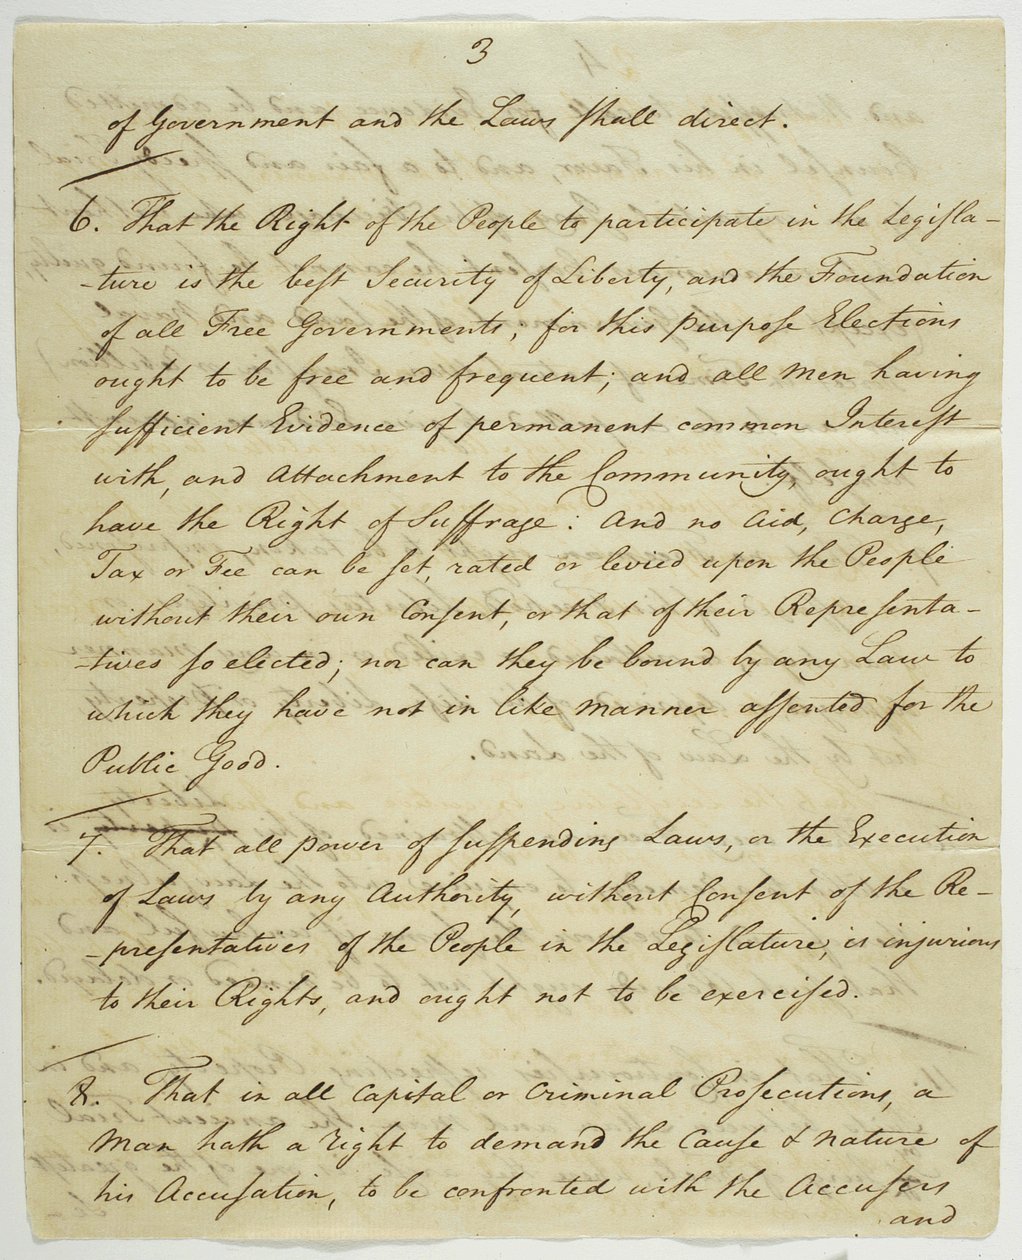 3
of Government and the Laws shall direct.
6. That the Right of the People to participate in the Legisla-
-ture is the best Security of Liberty, and the Foundation
of all Free Governments; for this purpose Elections
ought to be free and frequent; and all Men having
sufficient Evidence of permanent common Interest
with, and Attachment to the Community, ought to
have the Right of Suffrage: And no Aid, Charge,
Tax or Fee can be set, rated or levied upon the People
without their own Consent, or that of their Representa-
-tives so elected; nor can they be bound by any Law to
which they have not in like manner assented for the
Public Good.
7. That all power of suspending Laws, or the Execution
of Laws by any Authority, without Consent of the Re-
-presentatives of the People in the Legislature, is injurious
to their Rights, and ought not to be exercised.
8. That in all capital or criminal Prosecutions, a
Man hath a right to demand the Cause & Nature of
his Accusation, to be confronted with the Accusers
and